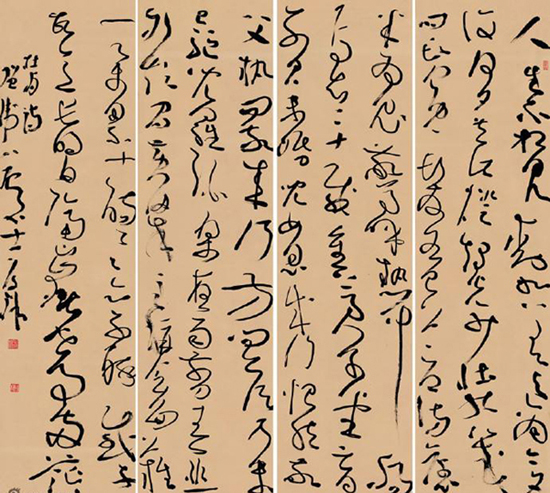 人生不相見動如參與商今夕
復何夕共此燈燭光少壯能幾
時鬢髮各已蒼訪舊
半為鬼驚呼熱中腸焉
知二十載重上君子堂昔
別君未婚兒女忽成行怡然敬
父執問我來何方問答乃未
已驅兒羅酒漿夜雨剪春韭
新炊間黃粱主稱會面難
一舉累十觴々亦不醉感子
故意長明日隔山岳世事兩茫
杜甫詩
贈衛八處士